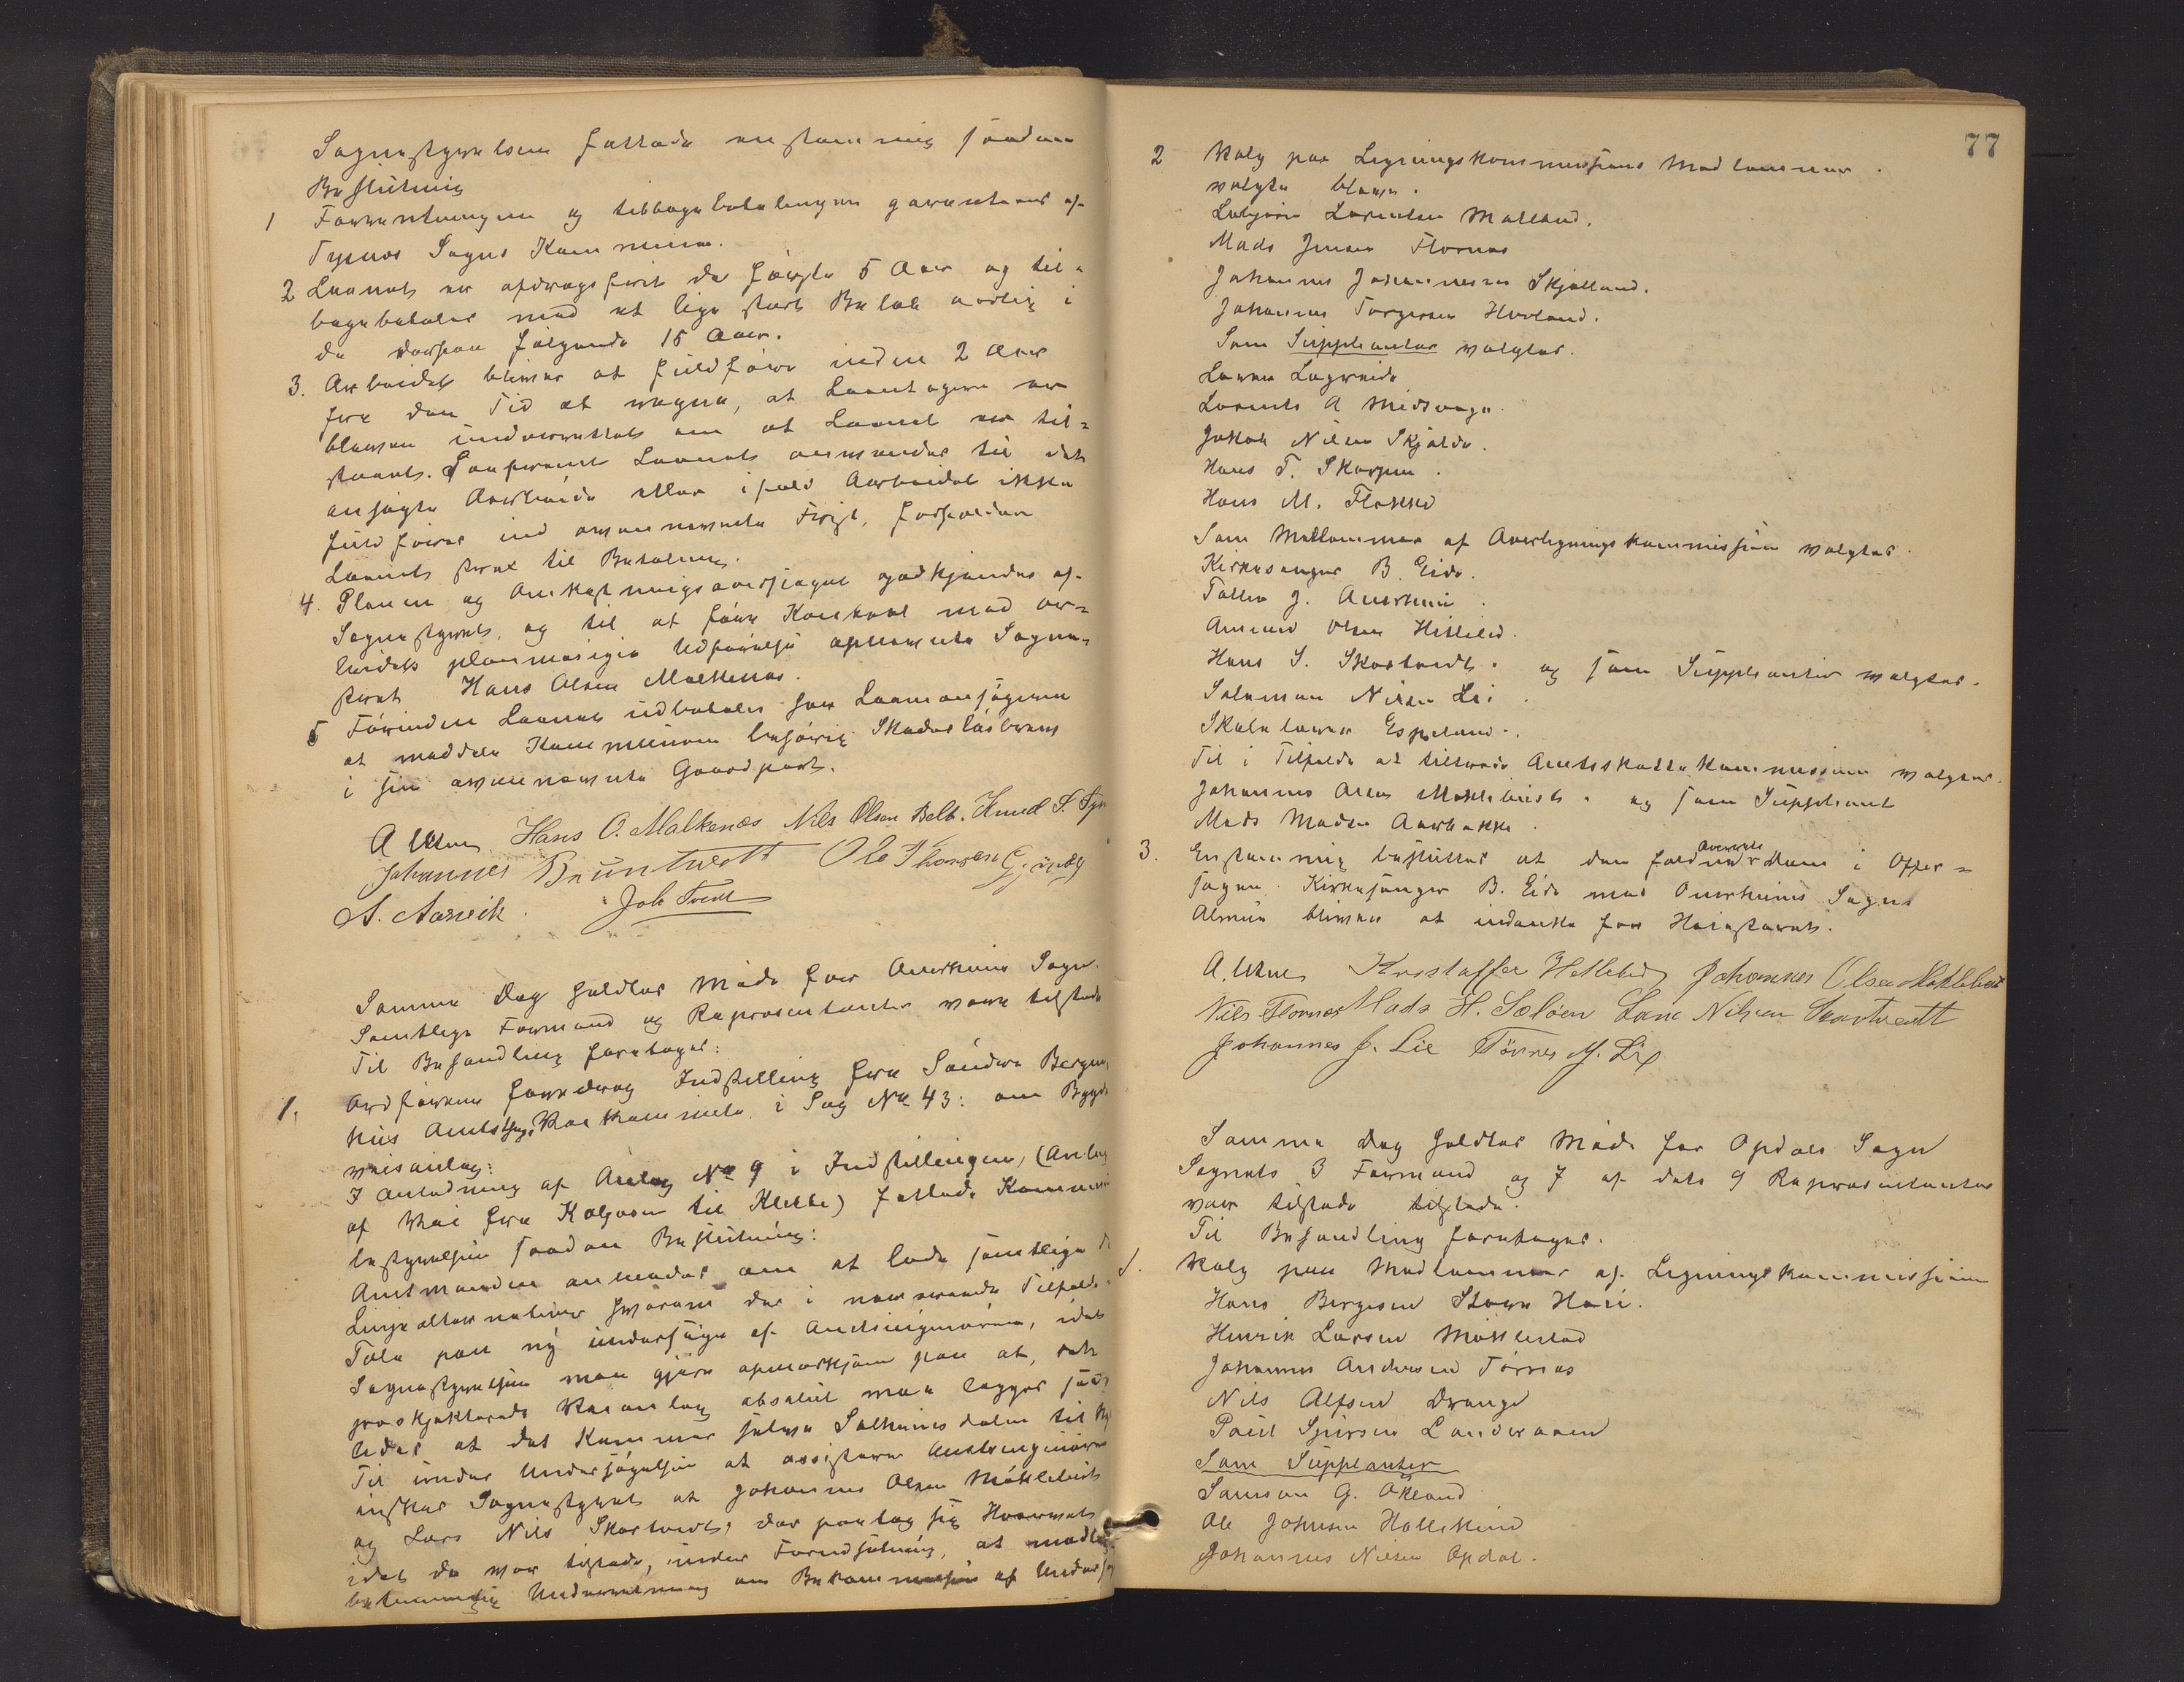 Sognestyrelsen fattede enstemmig saadan
Beslutning
1 Forrentningen og tilbagebetalingen garanteres af
Tysnes Sogns Kommune.
2 Laanet er afdragsfrit de første 5 Aar og til-
bagebetales med et lige stort Beløb aarlig i
de derpaa følgende 15 Aar.
3. Arbeidet bliver at fuldføre inden 2 Aar
fra den Tid at regne, at Laantageren er
bleven underrettet om at Laanet er til-
staaet. Saafremt Laanet anvendes til det
ansøgte Arbeide eller ifald Arbeidet ikke
fuldføres ind ovennævnte Frist, forfalder
Laanet strax til Betaling.
4. Planen og Omkostningsoverslaget godkjendes af
Sognestyret, og til at føre Kontrol med Ar-
beidets planmæsigie Udførelse opnævnte Sogne-
styret Hans Olsen Malkenes.
5 Førinden Laanet udbetales har Laanansøgeren
at meddele Kommunen behørig Skadesløsbrev
i sin ovennævnte Gaardpart.
A Uknes Hans O. Malkenæs Nils Olsen Belt. Knud S. Tys
Johannes Bruntvedt Ole Thorsen Gjøvåg
A. Aarvik. Job Tvedt
Samme Dag holdtes Møde for Onarheim Sogn.
Samtlige Formænd og Repræsentanter vare tilstede
Til Behandling foretoges:
1. Ordføreren foredrog Indstilling fra Søndre Bergen-
hus Amtsthings Veikommite i Sag No 43: om Bygde
veisanlæg:
I Anledning af Anlæg No 9 i Indstillingen, (Anlæg
af Vei fra Kolgoven til Klette) fattede Kommune
bestyrelsen saadan Beslutning:
Amtmanden anmodes om at lade samtlige de
Linjealternativer hvorom der i nærværende Tilfælde
Tale paa ny undersøge af Amtsingeniøren, idet
Sognestyrelsen maa gjøre opmærksom paa at, det
prosjekterede Veianlæg absolut maa lægges saa-
ledes at det kommer selve Solheimsdalen til Ny
Til under Undersøgelsen at assistere Amtsingeniøren
ønsker Sognestyret at Johannes Olsen Møklebust
og Lars Nils Skartvedt, der paatog sig Hvervet
idet de var tilstede, under Forudsætning, at meddeles
betimelig Underretning om Bekommelsen af Undersøg
77
2 Valg paa Ligningskommissions Medlemmer.
valgte bleve.
Lebjørn Larentsen Malland.
Mads Jensen Flornes
Johannes Johannesen Skjelland.
Johannes Torgersen Hovland.
Som Supplianter valgtes.
Lavran Lagreide
Lorents A Medvaage.
Jakob Nilsen Skjolde.
Hans T. Skorpen.
Hans M. Flakke
Som Medlemmer af Overligningskommissionen valgtes.
Kirkesanger B. Eide.
Tollev J. Onarheim.
Amund Olsen Hilleled.
Hans S. Skartvedt. og som Suppleanter valgtes.
Salamon Nilsen Lei.
Skolelærer Espeland.
Til i Tilfælde at tiltræde Amtsskattekommissionen valgtes.
Johannes Olsen Møklebust. og som Suppleant
Mads Madsen Aarbakke.
3. Enstemmig besluttes at den faldne Overrets Dom i Offer-
sagen Kirkesanger B. Eide mod Onarheims Sogns
Almue bliver at indanke for Høiesteret.
A. Uknes Kristaffer Hetleled Johannes Olsen Møklebust
Nils Flornes Mads H. Sæløen Lars Nilsen Skartvedt
Johannes J. Lie Tørres M. Lie
Samme Dag holdtes Møde for Opdals Sogn
Sognets 3 Formænd og 7 af dets 9 Repræsentanter
vare tilstede tilstede.
Til Behandling foretoges.
1. Valg paa Medlemmer af Ligningskommissionen
Hans Bergesen Store Hovi.
Henrik Larsen Møklestad
Johannes Andersen Tørnes
Nils Alfsen Drange
Poul Sjursen Landeraaen
Som Supplenter
Samson G. Økland
Ole Johnsen Halleskind
Johannes Nielsen Opdal.